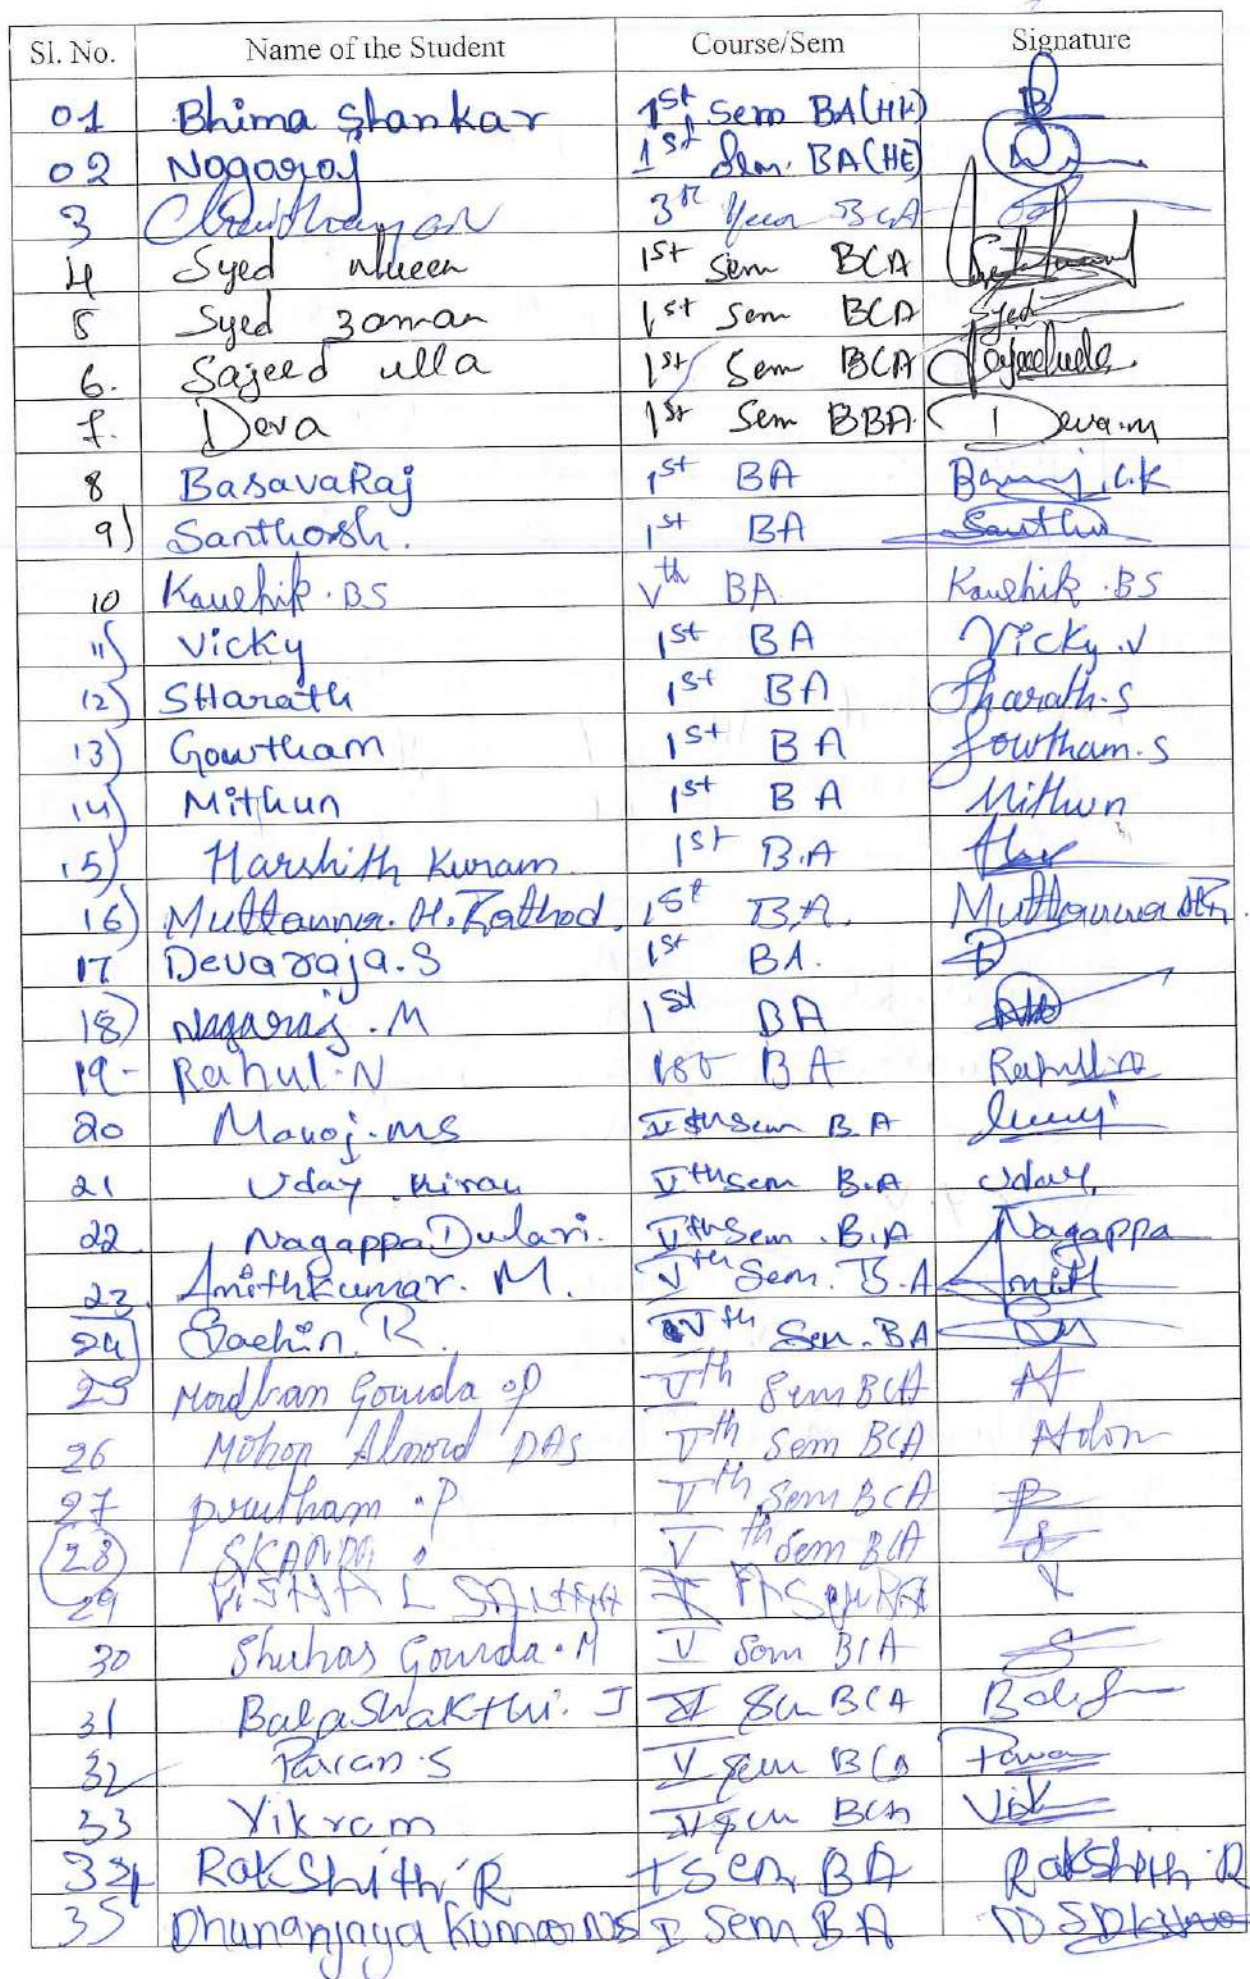 Sl. No. Name of the Student Course/Sem Signature
01 Bhima Shankar 1st Sem BA(HK) B
02 Nagaraj 1st Sem. BA(HE)
3 3rd Year BCA
4 Syed Mueen 1st Sem BCA
5 Syed Zaman 1st Sem BCA Syed
6. Sajeed ulla 1st Sem BCA Sajeedulla
7. Deva 1st Sem BBA. Deva.M
8 BasavaRaj 1st BA
9) Santhosh. 1st BA Santhu
10 Kaushik.BS Vth BA Kaushik.BS
11) Vicky 1st BA Vicky.V
12) SHarath 1st BA Sharath.S
13) Gowtham 1st BA Gowtham.S
14) Mithun 1st BA Mithun
15) Harshith Kuram 1st B.A
16) Muttanna.H.Rathod. 1st B.A. Muttanna HR.
17 Devaraja.S 1st BA.
18) Nagaraj.M 1st BA
19- Rahul.N 1st BA Rahul.N
20 Manoj.MS Vth Sem B.A
21 Uday.Kiran Vth Sem B.A Uday
22. Nagappa Dulari. Vth Sem. B.A Nagappa
23. AmithKumar.M. Vth Sem. B.A Amith
24) Sachin.R. Vth Sem. BA
25 Gowda Vth Sem BCA
26 Mohan DAS Vth Sem BCA
27 Prutham.P Vth Sem BCA P
28 SKANDA. Vth Sem BCA S
29 VISHAL
30 Shuhas Gowda.M V Sem BCA
31 BalaShakthi.J Sem BCA
32 Pavan.S V Sem BCA Pavan
33 Vikram V Sem BCA Vik
34 RakShith R I Sem BA RakShith R
35 Dhananjaya Kumar NS I Sem BA